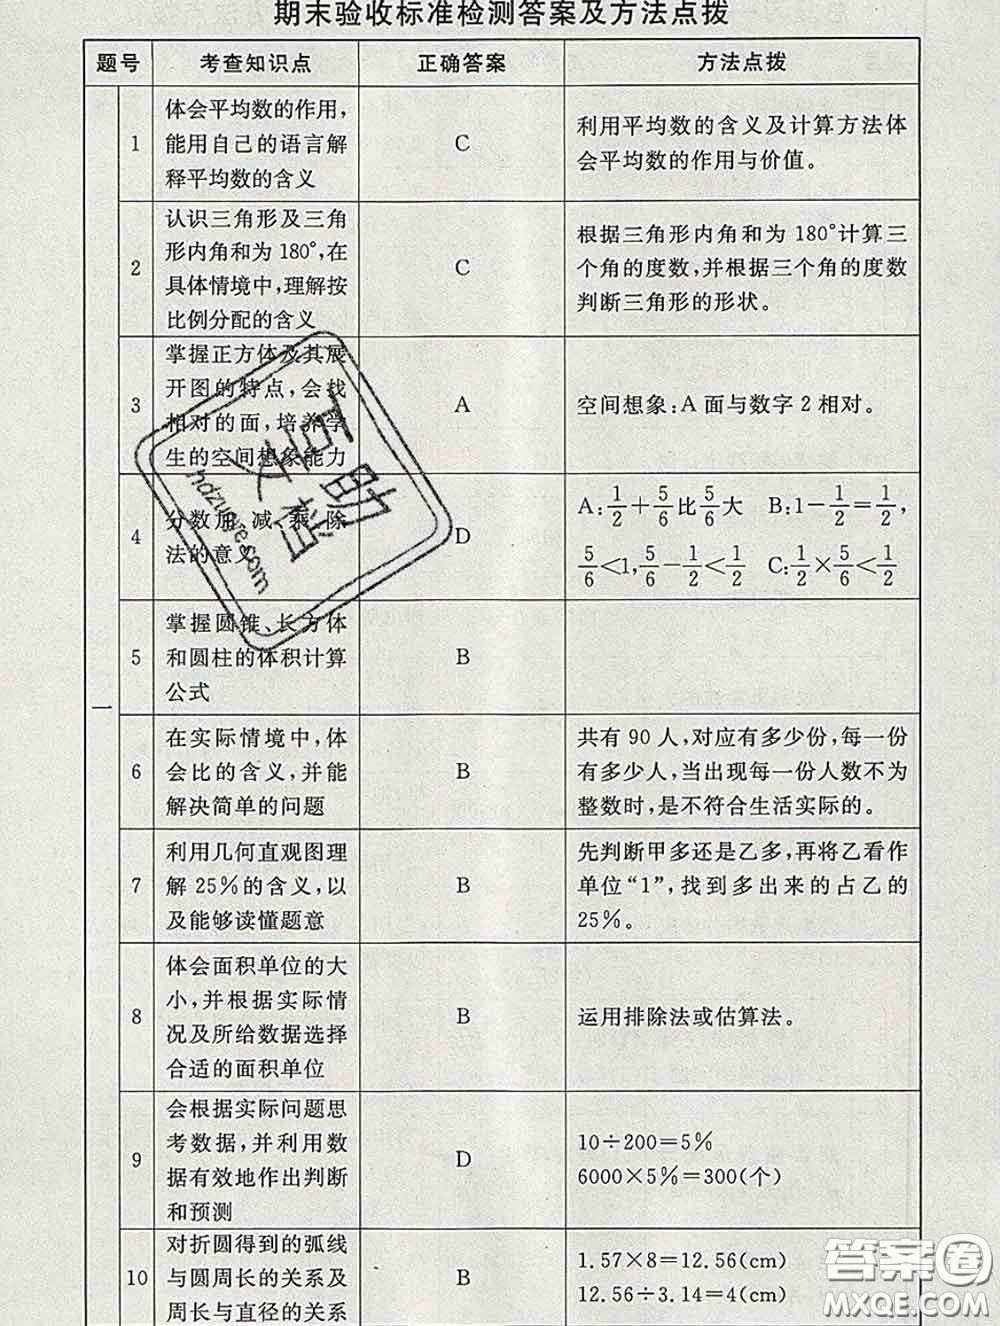 期末验收标准检测答案及方法点拨
题号 考查知识点 正确答案 方法点拨
一
1
体会平均数的作用，
能用自己的语言解
释平均数的含义
C
利用平均数的含义及计算方法体
会平均数的作用与价值。
2
认识三角形及三角
形内角和为180°，在
具体情境中，理解按
比例分配的含义
C
根据三角形内角和为180°计算三
个角的度数，并根据三个角的度数
判断三角形的形状。
3
掌握正方体及其展
开图的特点，会找
相对的面，培养学
生的空间想象能力
A
空间想象：A面与数字2相对。
4
分数加、减、乘、除
法的意义
D
A：1/2＋5/6比5/6大 B：1－1/2＝1/2，
5/6＜1，5/6－1/2＜1/2 C：1/2×5/6＜1/2
5
掌握圆锥、长方体
和圆柱的体积计算
公式
B
6
在实际情境中，体
会比的含义，并能
解决简单的问题
B
共有90人，对应有多少份，每一份
有多少人，当出现每一份人数不为
整数时，是不符合生活实际的。
7
利用几何直观图理
解25％的含义，以
及能够读懂题意
B
先判断甲多还是乙多，再将乙看作
单位“1”，找到多出来的占乙的
25％。
8
体会面积单位的大
小，并根据实际情
况及所给数据选择
合适的面积单位
B
运用排除法或估算法。
9
会根据实际问题思
考数据，并利用数
据有效地作出判断
和预测
D
10÷200＝5％
6000×5％＝300(个)
10
对折圆得到的弧线
与圆周长的关系及
周长与直径的关系
B
1.57×8＝12.56(cm)
12.56÷3.14＝4(cm)
互助
文档
hdzuoye.com
答案圈
MXQE.COM